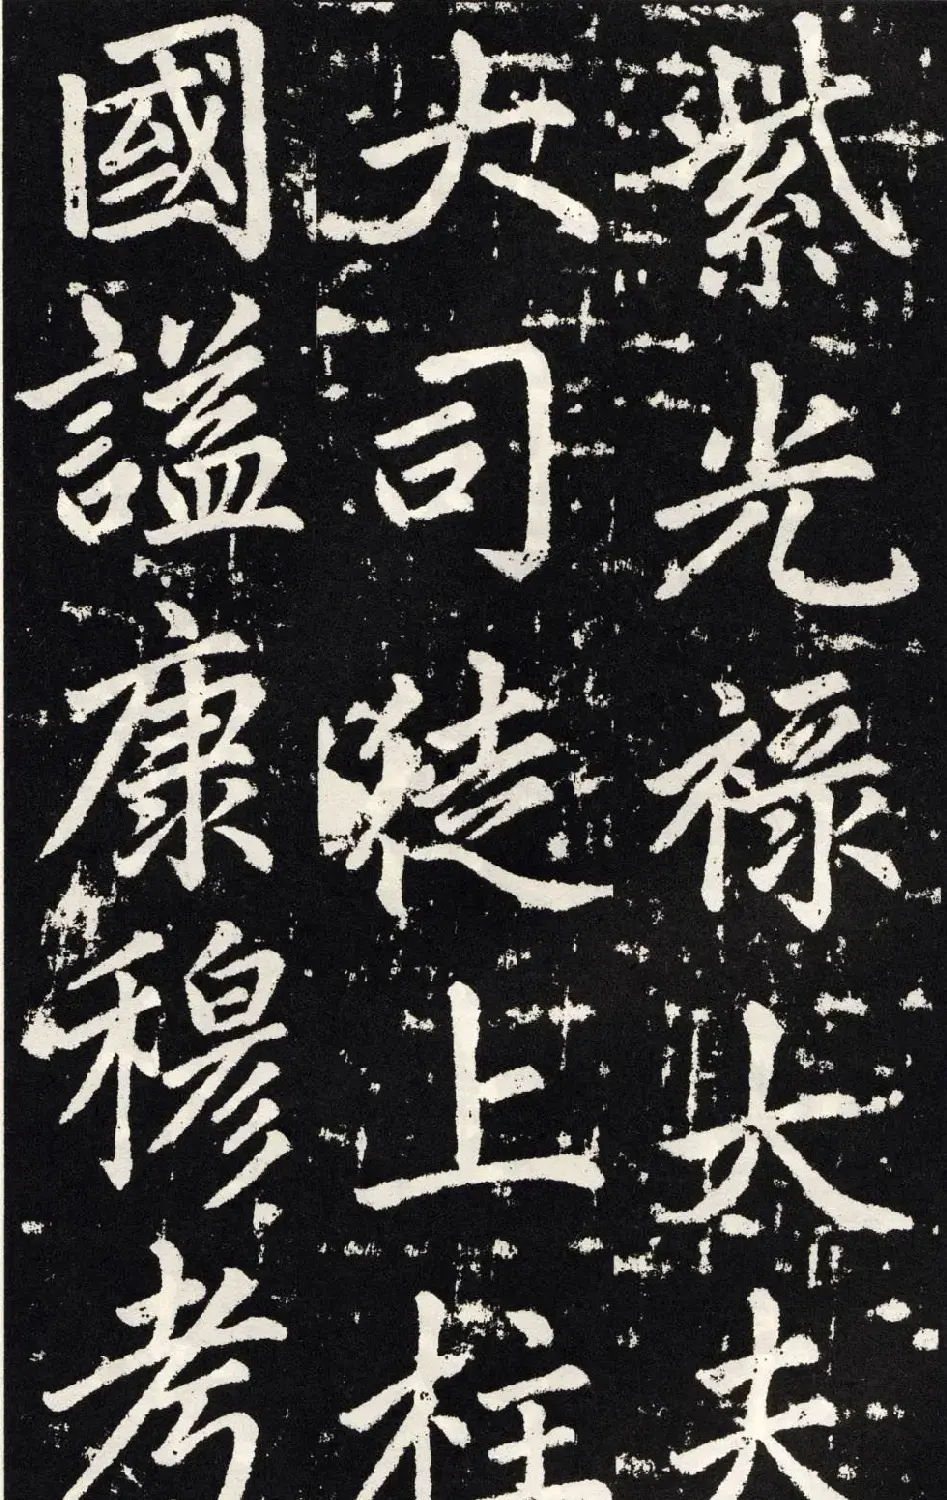 紫光祿大夫
大司徒上柱
國謚康穆考